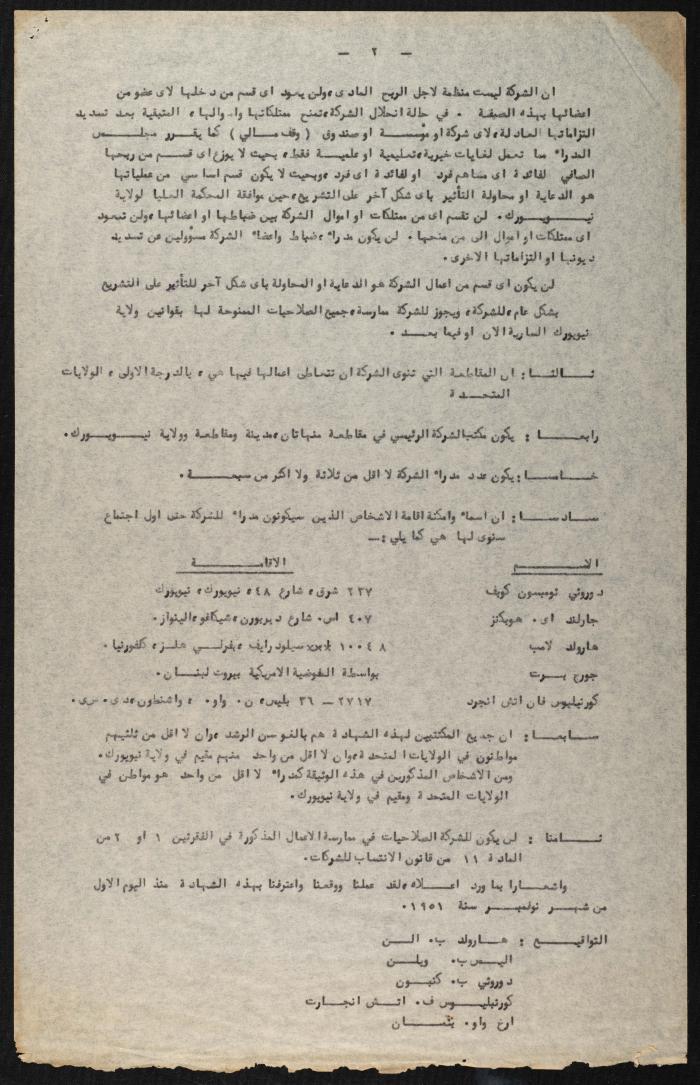 — ٢ —
ان الشركة ليست منظمة لاجل الربح المادى، ولن يعود اى قسم من دخلها لاى عضو من
اعضائها بهذه الصفة ٠ في حالة انحلال الشركة، تمنح ممتلكاتها واموالها، المتبقية بعد تسديد
التزاماتها العادلة، لاى شركة او مؤسسة او صندوق ( وقف مالي ) كما يقرر مجلس
المدراء مما تعمل لغايات خيرية، تعليمية او علمية فقط، بحيث لا يوزع اى قسم من ربحها
الصافي لفائدة اى مساهم فرد او لفائدة اى فرد، وبحيث لا يكون قسم اساسي من عملياتها
هو الدعاية او محاولة التأثير باى شكل آخر على التشريع، حين موافقة المحكمة العليا لولاية
نيويورك٠ لن تقسم اى من ممتلكات او اموال الشركة بين ضباطها او اعضائها، ولن تعود
اى ممتلكات او اموال الى من منحها٠ لن يكون مدراء، ضباط واعضاء الشركة مسؤولين عن تسديد
ديونها او التزاماتها الاخرى٠
لن يكون اى قسم من اعمال الشركة هو الدعاية او المحاولة باى شكل آخر للتأثير على التشريع
بشكل عام، للشركة، ويجوز للشركة ممارسة، جميع الصلاحيات الممنوحة لها بقوانين ولاية
نيويورك السارية الان او فيما بعد ٠
ثالثا : ان المقاطعة التي تنوى الشركة ان تتعاطى اعمالها فيها هي، بالدرجة الاولى، الولايات
المتحدة
رابعا : يكون مكتب الشركة الرئيسي في مقاطعة منهاتان، مدينة ومقاطعة وولاية نيويورك٠
خامسا : يكون عدد مدراء الشركة لا اقل من ثلاثة ولا اكثر من سبعة٠
سادسا : ان اسماء وامكنة اقامة الاشخاص الذين سيكونون مدراء للشركة حتى اول اجتماع
سنوى لها هي كما يلي :—
الاسم الاقامة
دوروثي تومبسون كويف ٢٣٧ شرق، شارع ٤٨، نيويورك، نيويورك
جارلند اى٠ هوبكنز ٤٠٧ اس٠ شارع ديربورن، شيكاغو، الينواز٠
هارولد لامب ١٠٠٤٨ سيلود رايف، بفرلي هلز، كلفورنيا٠
جورج برت بواسطة المفوضية الامريكية بيروت لبنان٠
كورنيليوس فان اتش انجرد ٢٧١٧ — ٣٦ بليس، ن٠ واو٠ ، واشنطون، دى٠ سى٠
سابعا : ان جميع المكتتبين لهذه الشهادة هم بالغو سن الرشد، وان لا اقل من ثلثيهم
مواطنون في الولايات المتحدة، وان لا اقل من واحد منهم مقيم في ولاية نيويورك٠
ومن الاشخاص المذكورين في هذه الوثيقة كمدراء لا اقل من واحد هو مواطن في
الولايات المتحدة ومقيم في ولاية نيويورك٠
ثامنا : لن يكون للشركة الصلاحيات في ممارسة الاعمال المذكورة في الفقرتين ١ او ٢ من
المادة ١١ من قانون الانتساب للشركات٠
واشعارا بما ورد اعلاه، لقد عملنا ووقعنا واعترفنا بهذه الشهادة منذ اليوم الاول
من شهر نوفمبر سنة ١٩٥١٠
التواقيع : هارولد ب٠ الن
اليس ب٠ ويلن
دوروثي ب٠ كنيون
كورنيليوس ف٠ اتش انجارت
ارغ واو٠ يثمان